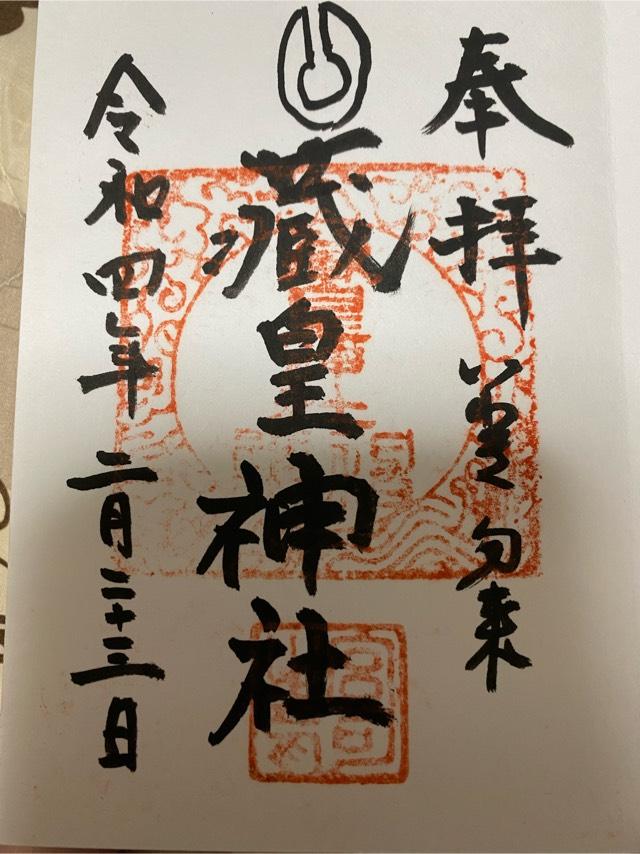 奉拝
いわき勿来
蔵皇神社
令和四年二月二十三日